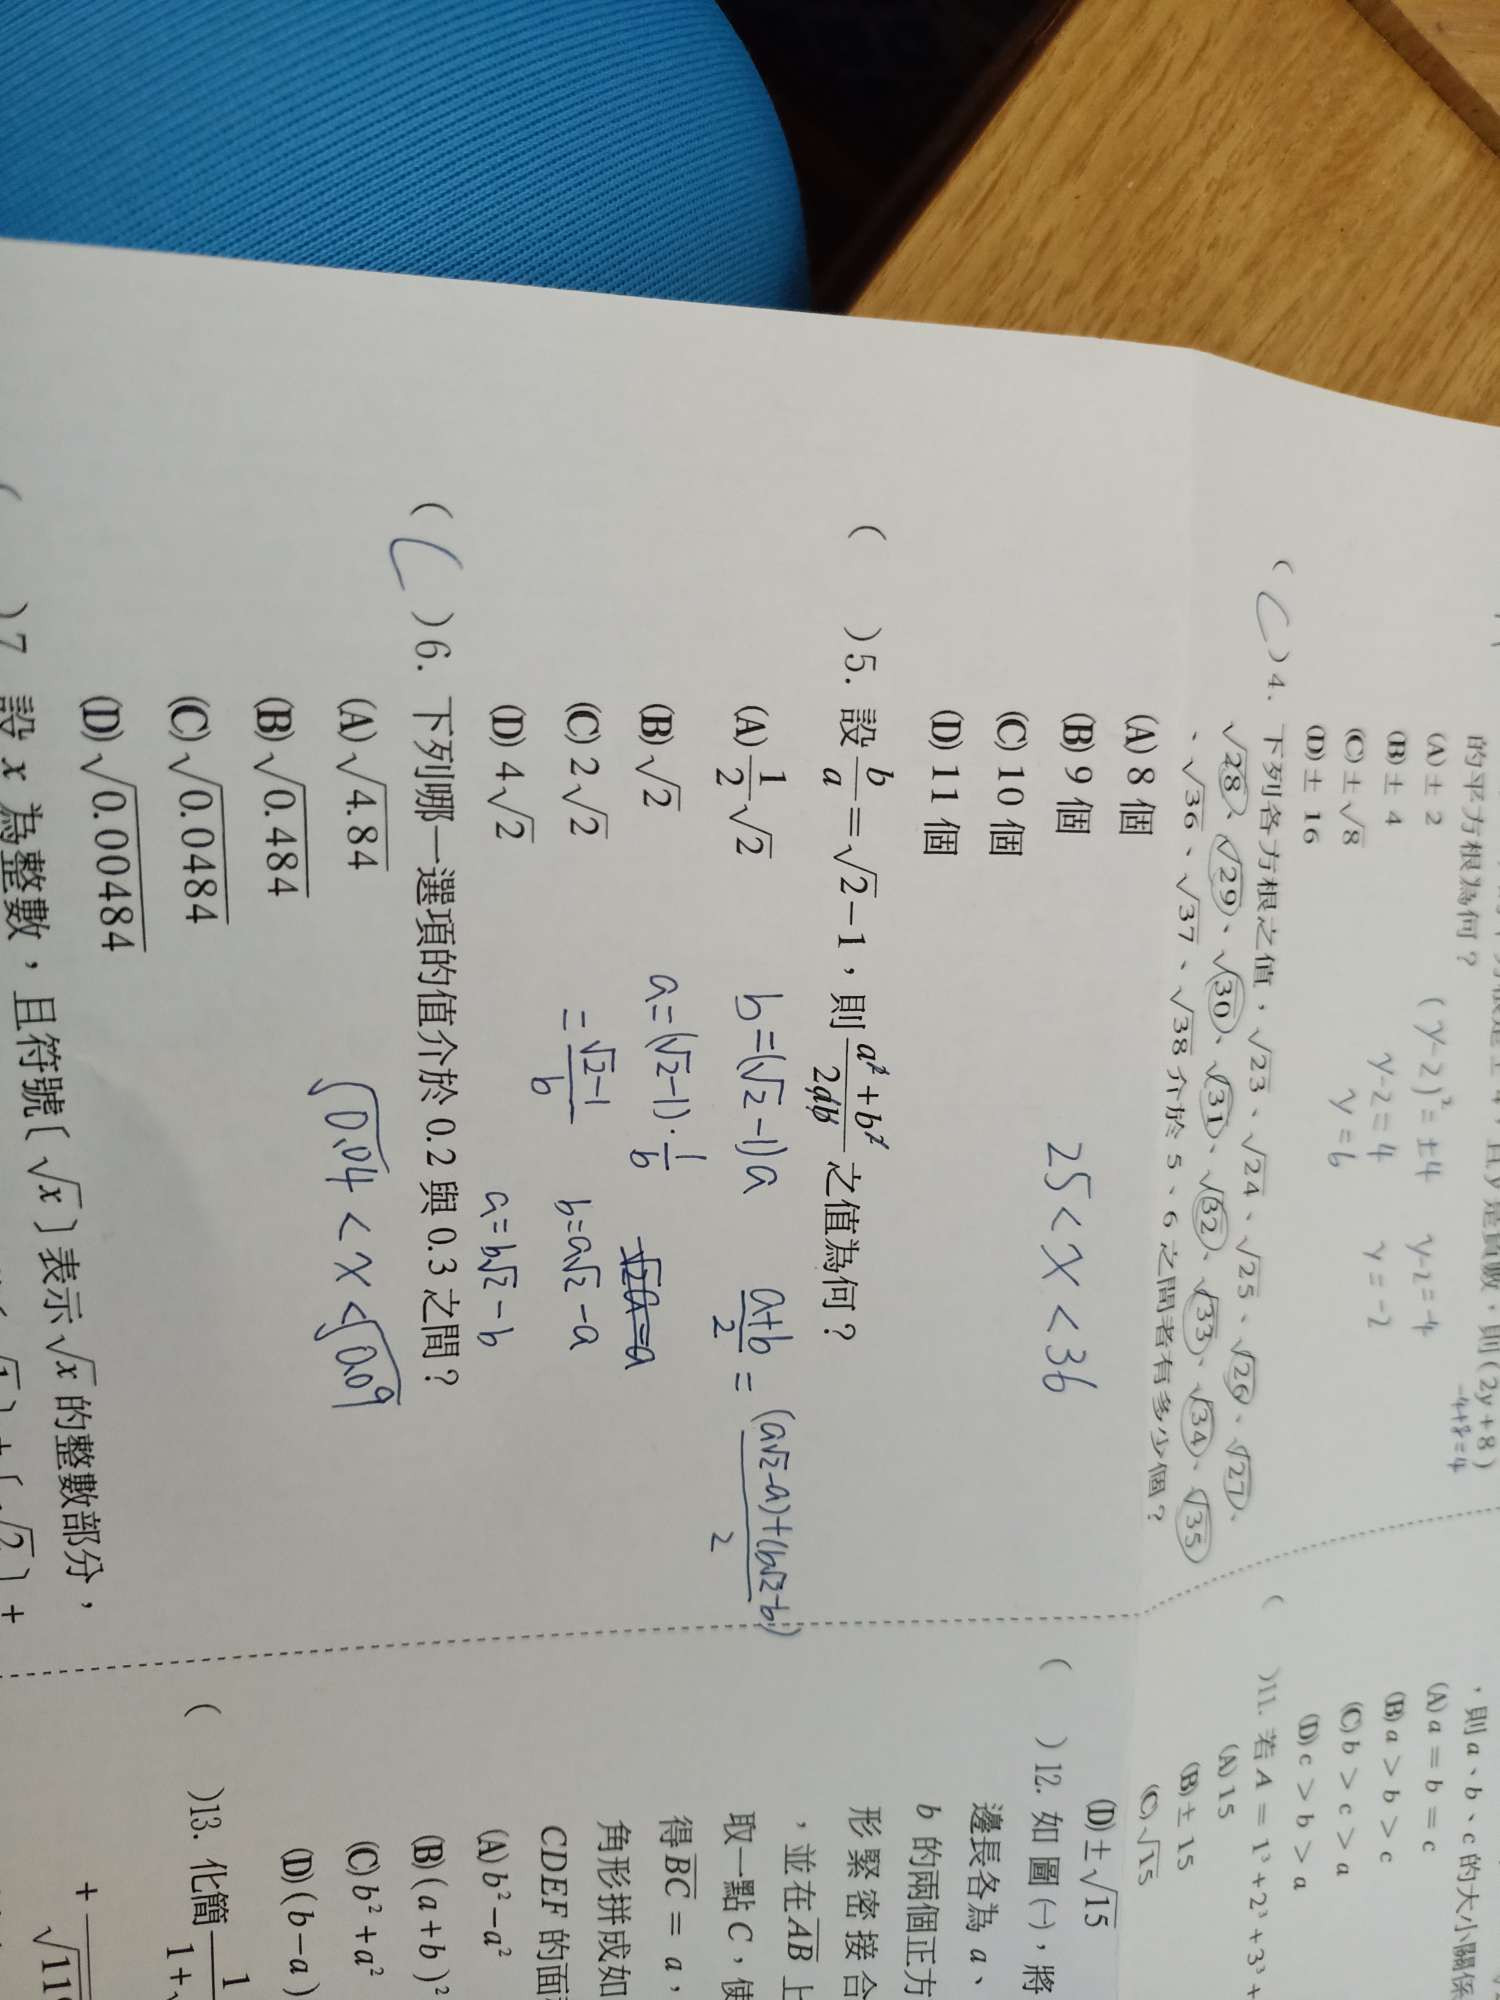 的平方根為何？
(A) ± 2
(B) ± 4
(C) ± √8
(D) ± 16
(y-2)² = ±4
y-2=4
y=6
y-2=-4
y=-2
-4+8=4
( C ) 4. 下列各方根之值，√23、√24、√25、√26、√27、
√28、√29、√30、√31、√32、√33、√34、√35
、√36、√37、√38 介於 5、6 之間者有多少個？
(A) 8 個
(B) 9 個
(C) 10 個
(D) 11 個
25 < x < 36
( ) 5. 設 b/a = √2 − 1，則 (a² + b²)/2ab 之值為何？
(A) 1/2 √2
(B) √2
(C) 2√2
(D) 4√2
b=(√2-1)a
a=(√2-1)·1/b
= (√2-1)/b
(a+b)/2 = ((a√2-a)+(b√2-b))/2
√2a=a
b=a√2-a
a=b√2-b
( C ) 6. 下列哪一選項的值介於 0.2 與 0.3 之間？
(A) √4.84
(B) √0.484
(C) √0.0484
(D) √0.00484
√0.04 < x < √0.09
( ) 7 設 x 為整數，且符號〔√x〕表示 √x 的整數部分，
，則 a、b、c 的大小關係
(A) a = b = c
(B) a > b > c
(C) b > c > a
(D) c > b > a
( ) 11. 若 A = 1³ + 2³ + 3³ +
(A) 15
(B) ± 15
(C) √15
(D) ± √15
( ) 12. 如圖(一)，將
邊長各為 a、
b 的兩個正方
形緊密接合
，並在 AB 上
取一點 C，使
得 BC = a，
角形拼成如
CDEF 的面
(A) b² − a²
(B) (a + b)²
(C) b² + a²
(D) (b − a)
( ) 13. 化簡 1/1+